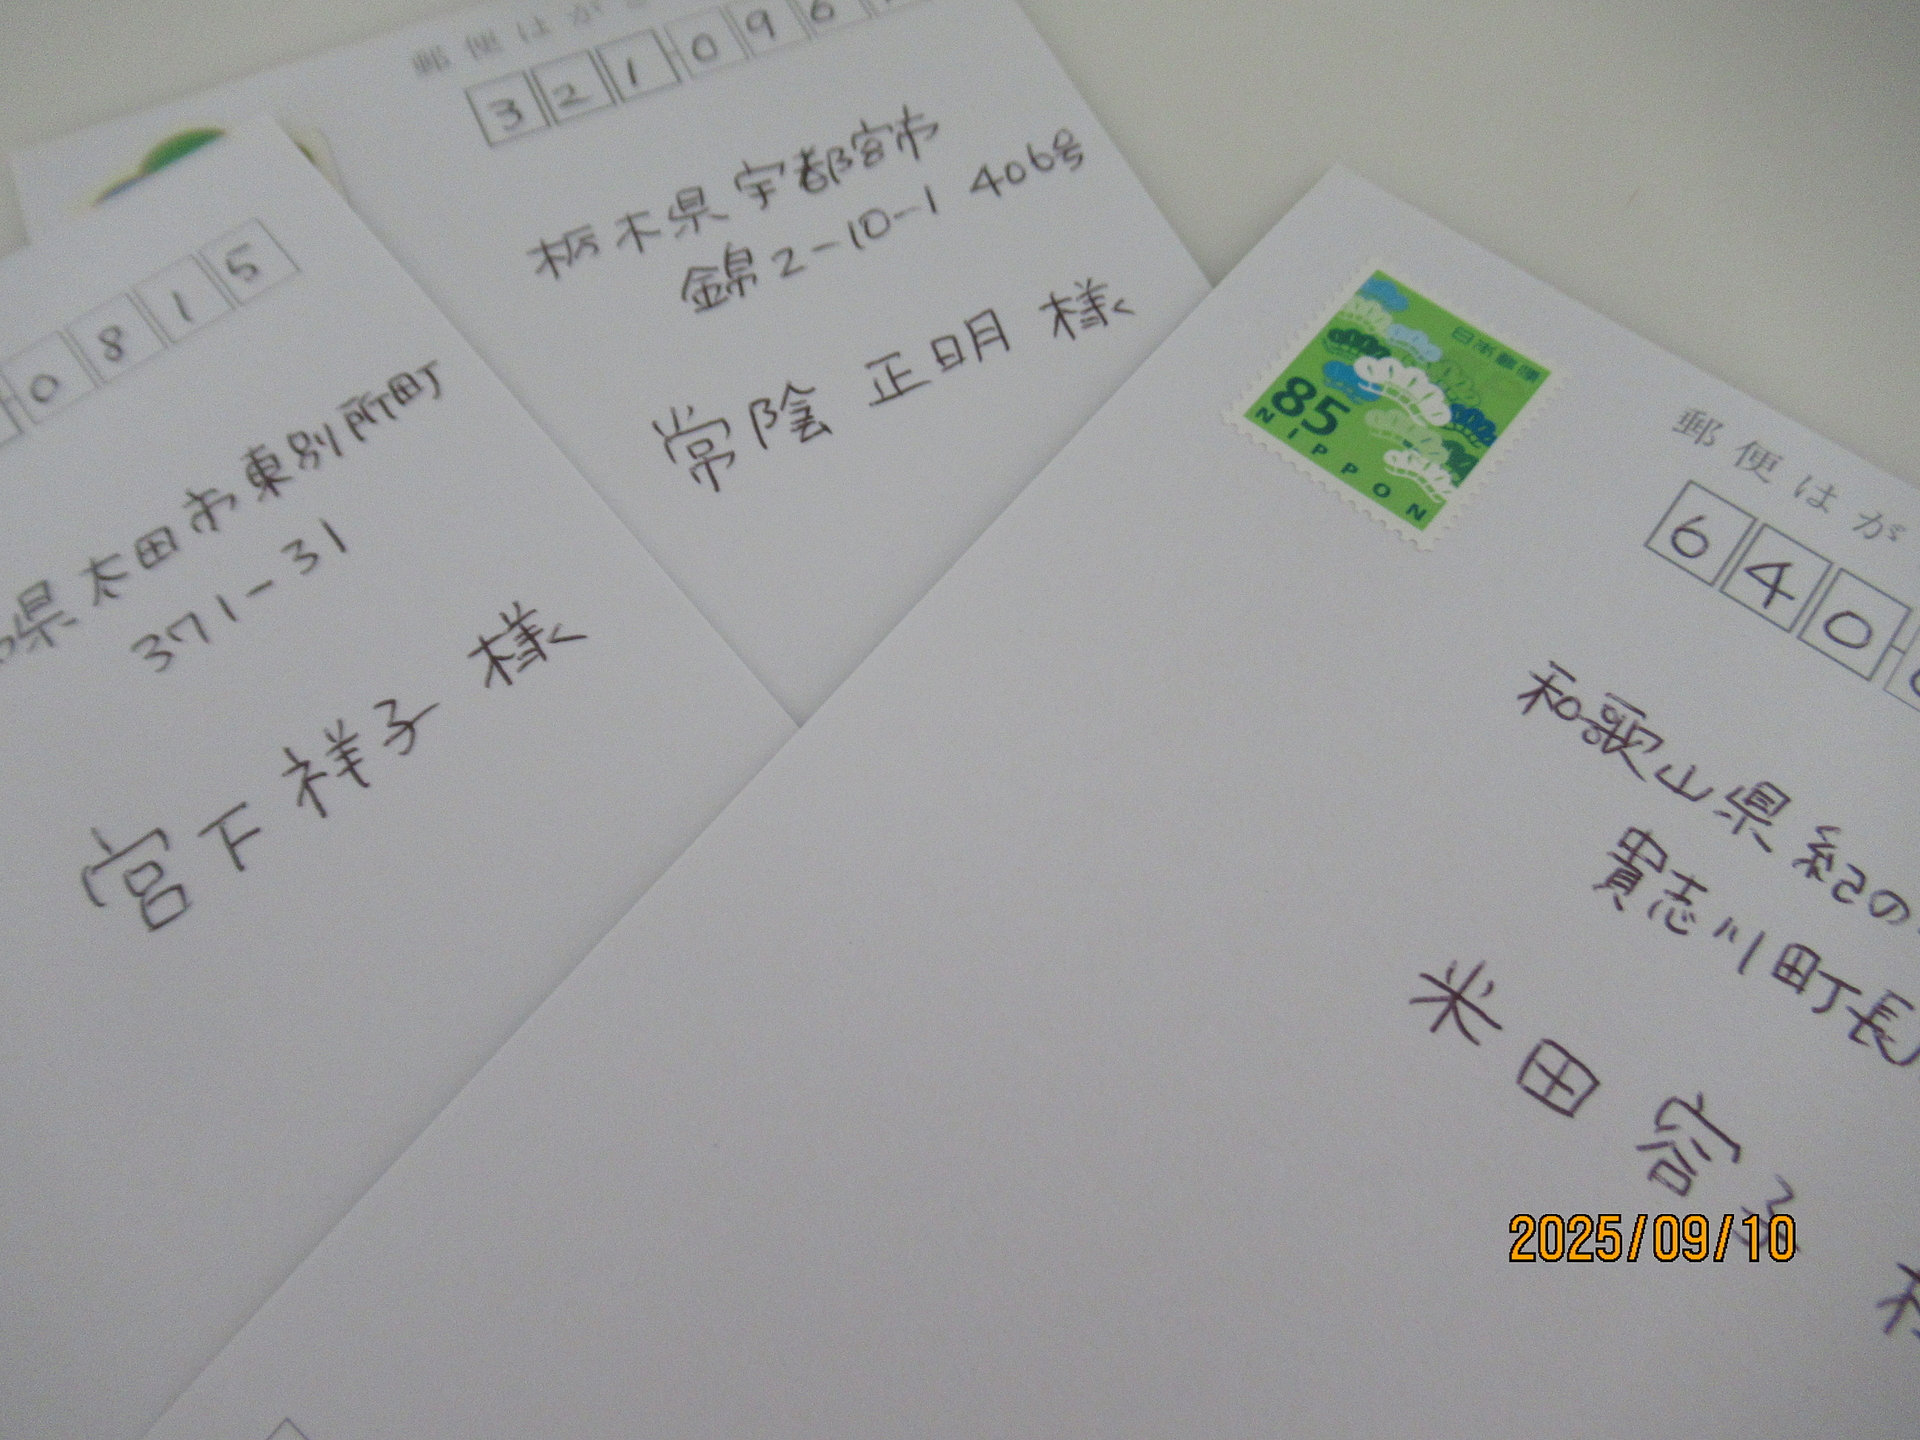 郵便はが
321096
栃木県宇都宮市
錦2-10-1 406号
常陰 正明 様
0815
県太田市東別所町
371-31
宮下 祥子 様
日本郵便
85
NIPPON
郵便はが
640
和歌山県紀の
貴志川町長
米田 容子
2025/09/10